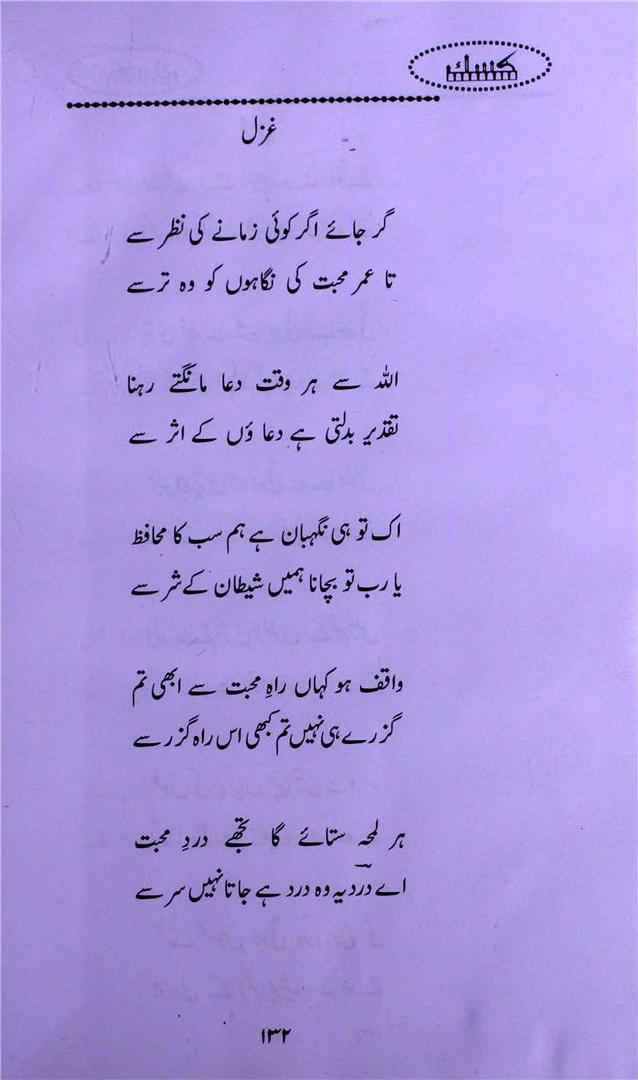 کسک
غزل
گر جائے اگر کوئی زمانے کی نظر سے
تا عمر محبت کی نگاہوں کو وہ ترسے
اللہ سے ہر وقت دعا مانگتے رہنا
تقدیر بدلتی ہے دعاؤں کے اثر سے
اک تو ہی نگہبان ہے ہم سب کا محافظ
یا رب تو بچانا ہمیں شیطان کے شر سے
واقف ہو کہاں راہِ محبت سے ابھی تم
گزرے ہی نہیں تم کبھی اس راہ گزر سے
ہر لمحہ ستائے گا تجھے دردِ محبت
اے دردؔ یہ وہ درد ہے جاتا نہیں سر سے
۱۳۲